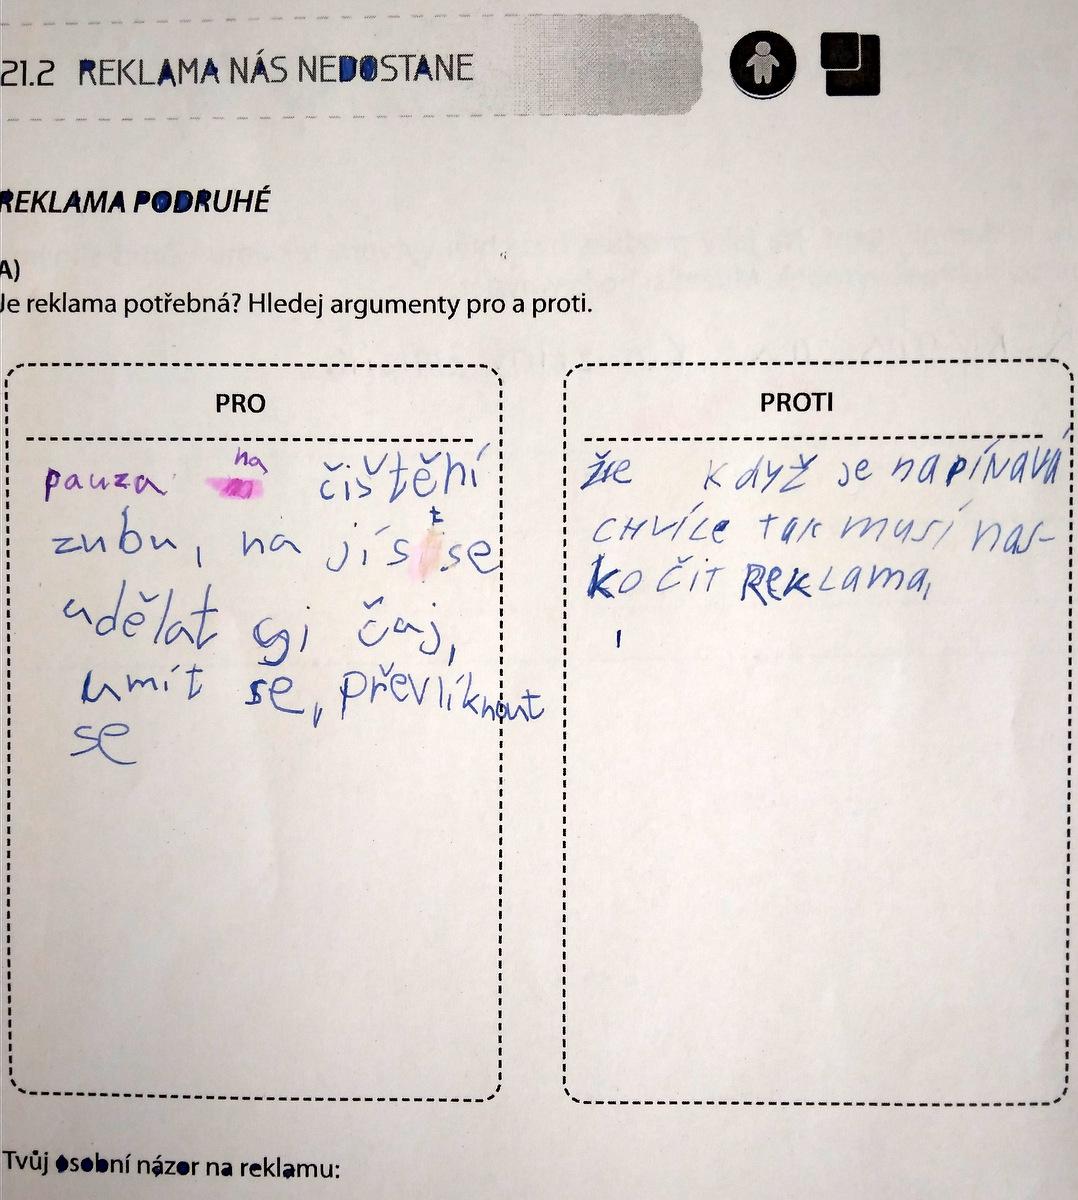 21.2 REKLAMA NÁS NEDOSTANE
REKLAMA PODRUHÉ
A)
Je reklama potřebná? Hledej argumenty pro a proti.
PRO
pauza na čištění
zubu, na jíst se
udělat si čaj,
umít se, převlíknout
se
PROTI
že když je napínavá
chvíle tak musí nas-
kočit reklama,
Tvůj osobní názor na reklamu: